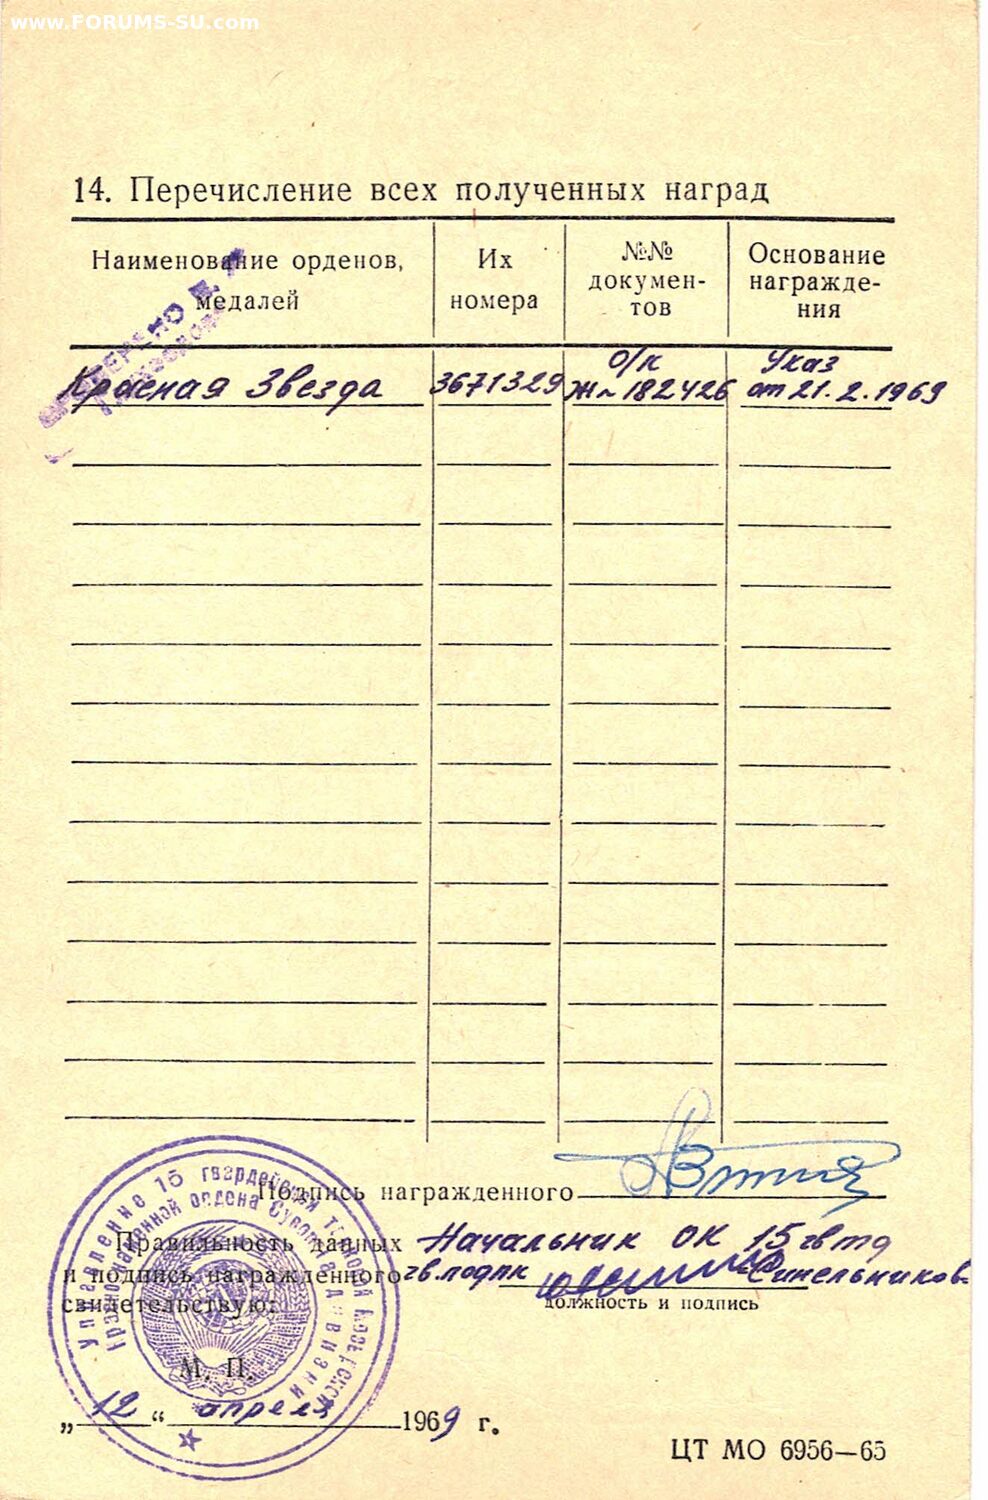 www.FORUMS-SU.com
14. Перечисление всех полученных наград
Наименование орденов, медалей
Их номера
№№ докумен-
тов
Основание
награжде-
ния
Красная Звезда
3671329
О/к
Ж № 182426
Указ
от 21.2.1969
Подпись награжденного
Правильность данных
и подпись награжденного
свидетельствую:
Начальник ОК 15 гв тд
гв. подпк
Синельников
должность и подпись
М. П.
Управление 15 гвардейской танковой Мозырской
Краснознаменной ордена Суворова дивизии
„12“ апреля 1969 г.
ЦТ МО 6956—65